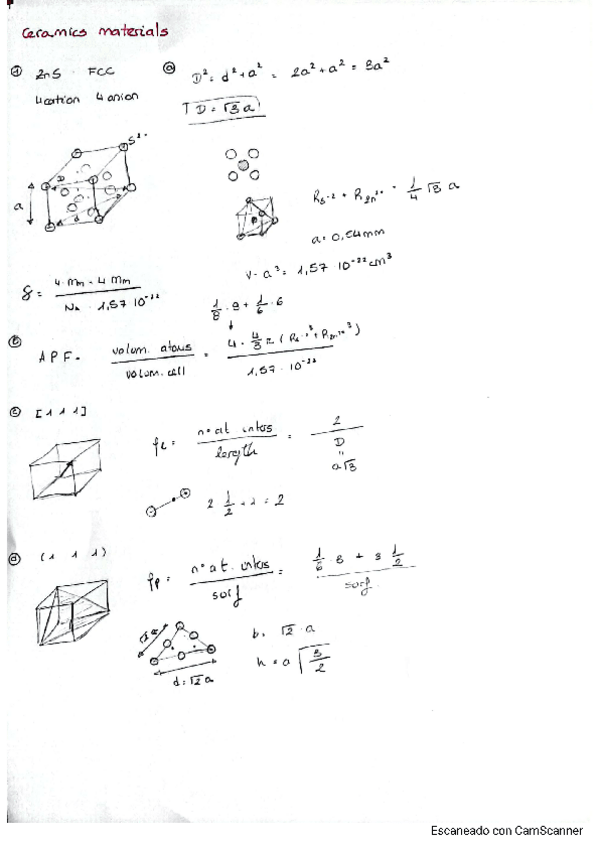 Ceramics materials
① ZnS FCC
4 cation 4 anion
ⓐ D² = d² + a² = 2a² + a² = 3a²
D = √3 a
S²⁻
D
d
a
R_S⁻² + R_Zn²⁺ = 1/4 √3 a
a = 0,54 nm
V = a³ = 1,57 10⁻²² cm³
ρ = (4 · Mm + 4 Mm) / (N_A · 1,57 10⁻²²)
1/8 · 8 + 1/6 · 6
ⓑ APF = volum. atoms / volum. cell = 4 · 4/3 π (R_S⁻²³ + R_Zn²⁺³) / 1,57 · 10⁻²²
ⓒ [1 1 1]
ρL = nº at inters / length = 2 / D
"
a√3
2 1/2 + 1 = 2
ⓓ (1 1 1)
ρp = nº at. inters / surf = (1/6 · 3 + 3 1/2) / surf
√2 a
d = √2 a
b = √2 · a
h = a √(3/2)
Escaneado con CamScanner